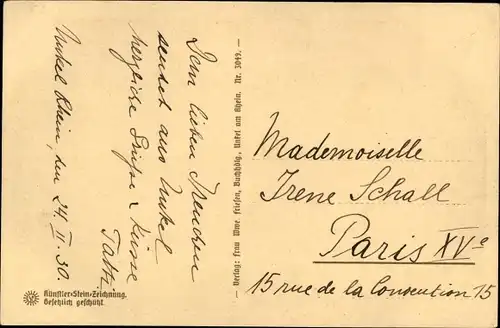 Unkel Rhein, den 24. II. 30.
Dem lieben Irenchen
sendet aus Unkel
herzliche Grüße & Küsse
Tatti
Künstler-Stein-Zeichnung.
Gesetzlich geschützt.
- Verlag: Frau Wwe. Friesen, Buchhdlg., Unkel am Rhein. Nr. 3049. -
Mademoiselle
Irene Schall
Paris XVe
15 rue de la Convention 15